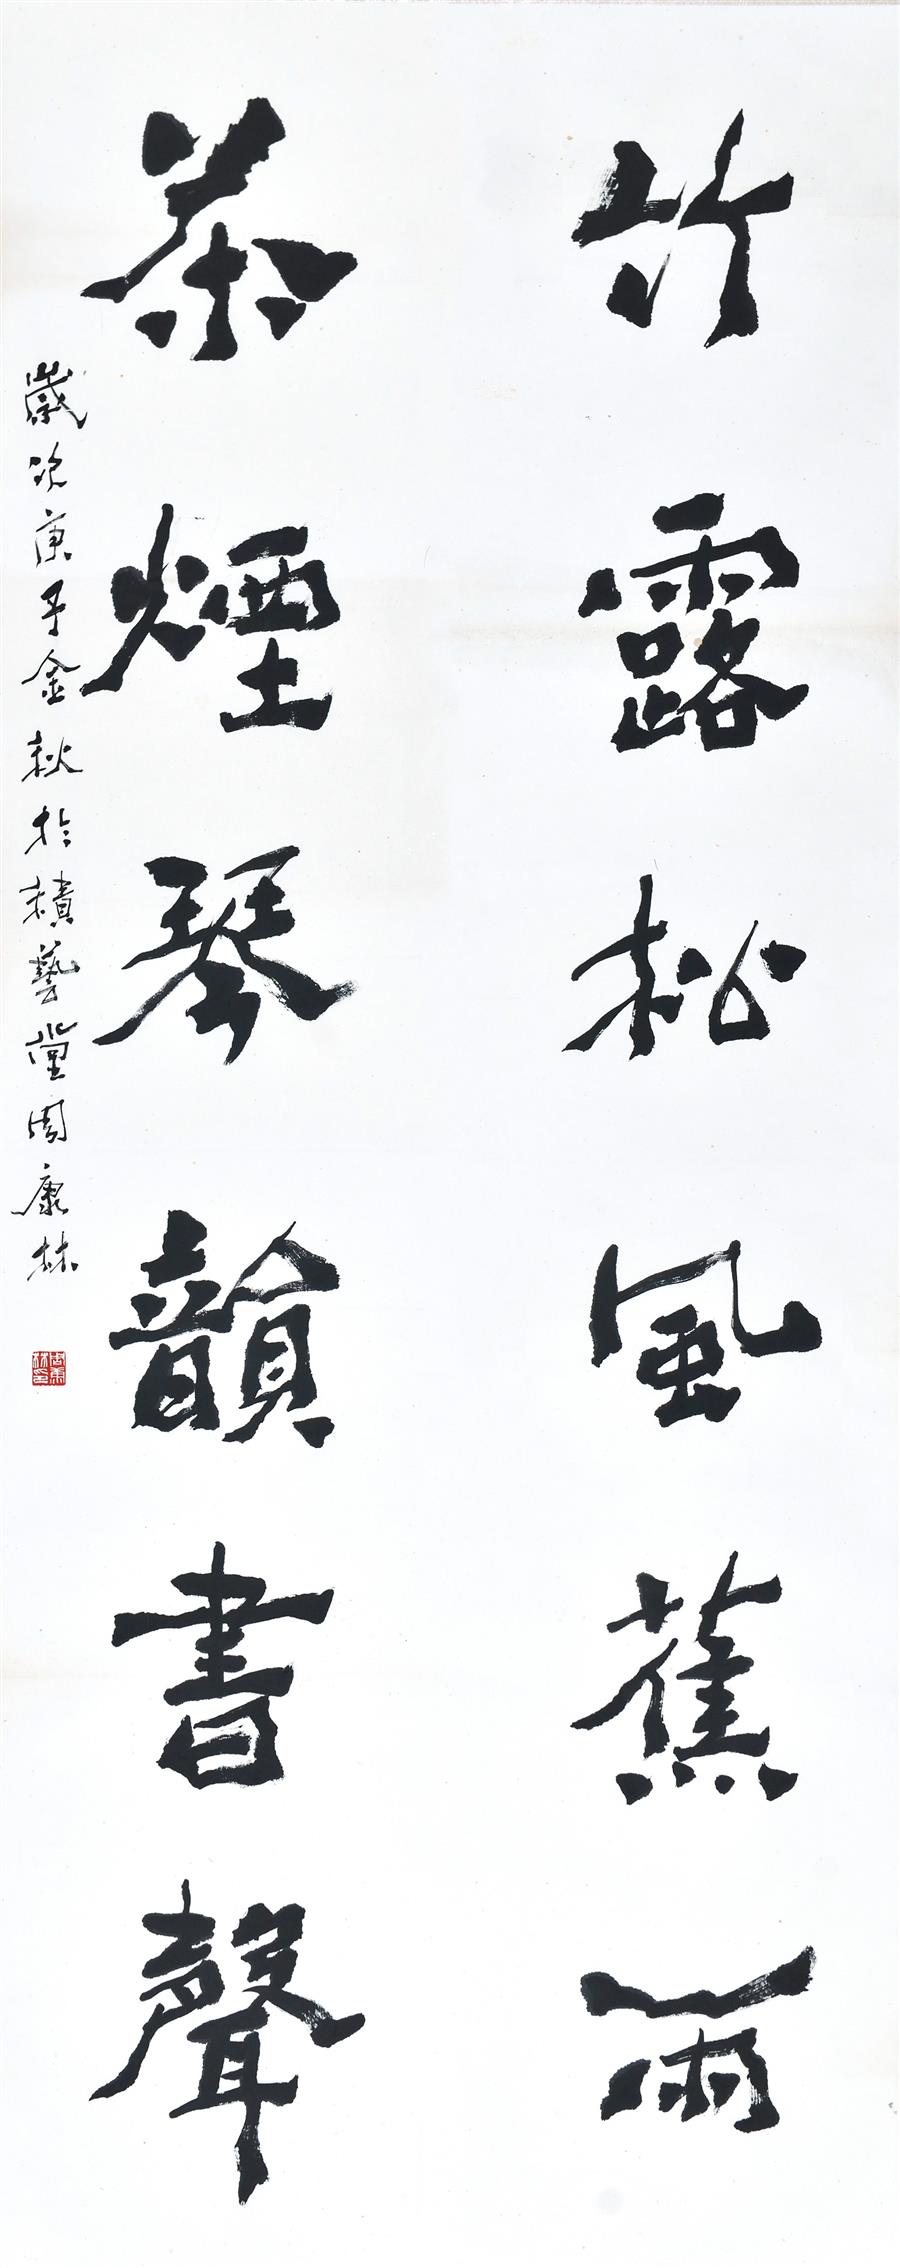 竹露松風蕉雨
茶煙琴韻書聲
歲次庚子金秋於積藝堂周康林
周康林印